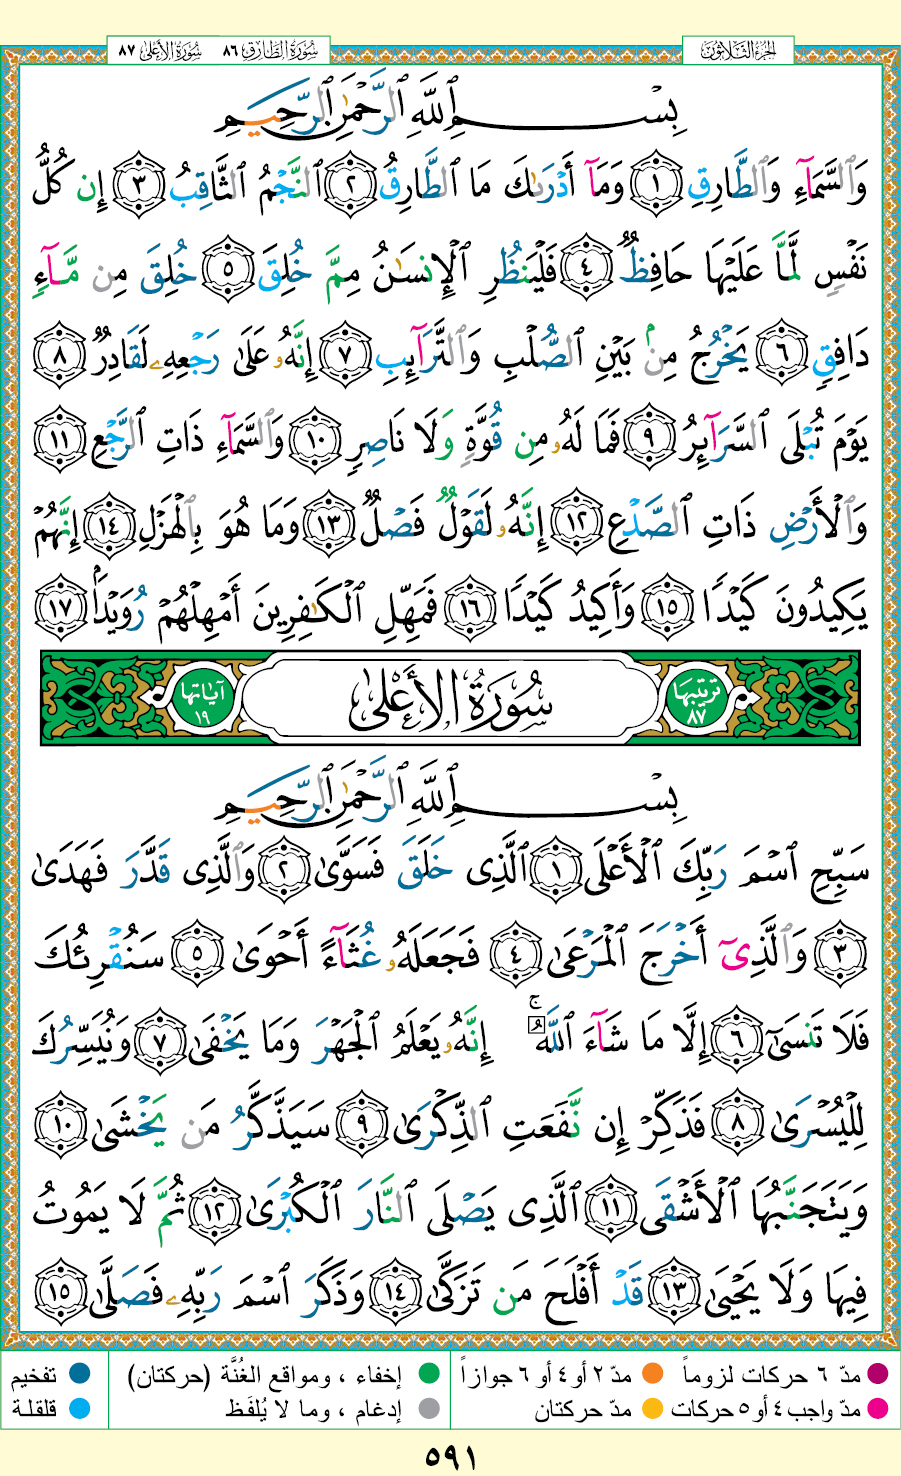 الجزء الثلاثون سورة الطارق ٨٦ سورة الأعلى ٨٧
بِسْمِ ٱللَّهِ ٱلرَّحْمَٰنِ ٱلرَّحِيمِ
وَٱلسَّمَآءِ وَٱلطَّارِقِ ١ وَمَآ أَدْرَىٰكَ مَا ٱلطَّارِقُ ٢ ٱلنَّجْمُ ٱلثَّاقِبُ ٣ إِن كُلُّ
نَفْسٍ لَّمَّا عَلَيْهَا حَافِظٌ ٤ فَلْيَنظُرِ ٱلْإِنسَٰنُ مِمَّ خُلِقَ ٥ خُلِقَ مِن مَّآءٍ
دَافِقٍ ٦ يَخْرُجُ مِنۢ بَيْنِ ٱلصُّلْبِ وَٱلتَّرَآئِبِ ٧ إِنَّهُۥ عَلَىٰ رَجْعِهِۦ لَقَادِرٌ ٨
يَوْمَ تُبْلَى ٱلسَّرَآئِرُ ٩ فَمَا لَهُۥ مِن قُوَّةٍ وَلَا نَاصِرٍ ١٠ وَٱلسَّمَآءِ ذَاتِ ٱلرَّجْعِ ١١
وَٱلْأَرْضِ ذَاتِ ٱلصَّدْعِ ١٢ إِنَّهُۥ لَقَوْلٌ فَصْلٌ ١٣ وَمَا هُوَ بِٱلْهَزْلِ ١٤ إِنَّهُمْ
يَكِيدُونَ كَيْدًا ١٥ وَأَكِيدُ كَيْدًا ١٦ فَمَهِّلِ ٱلْكَٰفِرِينَ أَمْهِلْهُمْ رُوَيْدًۢا ١٧
ترتيبها ٨٧ سُورَةُ الأَعْلَى آياتها ١٩
بِسْمِ ٱللَّهِ ٱلرَّحْمَٰنِ ٱلرَّحِيمِ
سَبِّحِ ٱسْمَ رَبِّكَ ٱلْأَعْلَى ١ ٱلَّذِى خَلَقَ فَسَوَّىٰ ٢ وَٱلَّذِى قَدَّرَ فَهَدَىٰ
٣ وَٱلَّذِىٓ أَخْرَجَ ٱلْمَرْعَىٰ ٤ فَجَعَلَهُۥ غُثَآءً أَحْوَىٰ ٥ سَنُقْرِئُكَ
فَلَا تَنسَىٰٓ ٦ إِلَّا مَا شَآءَ ٱللَّهُ ۚ إِنَّهُۥ يَعْلَمُ ٱلْجَهْرَ وَمَا يَخْفَىٰ ٧ وَنُيَسِّرُكَ
لِلْيُسْرَىٰ ٨ فَذَكِّرْ إِن نَّفَعَتِ ٱلذِّكْرَىٰ ٩ سَيَذَّكَّرُ مَن يَخْشَىٰ ١٠
وَيَتَجَنَّبُهَا ٱلْأَشْقَى ١١ ٱلَّذِى يَصْلَى ٱلنَّارَ ٱلْكُبْرَىٰ ١٢ ثُمَّ لَا يَمُوتُ
فِيهَا وَلَا يَحْيَىٰ ١٣ قَدْ أَفْلَحَ مَن تَزَكَّىٰ ١٤ وَذَكَرَ ٱسْمَ رَبِّهِۦ فَصَلَّىٰ ١٥
مدّ ٦ حركات لزوماً مدّ ٢ أو ٤ أو ٦ جوازاً إخفاء ، ومواقع الغُنَّة (حركتان) تفخيم
مدّ واجب ٤ أو ٥ حركات مدّ حركتان إدغام ، وما لا يُلفَظ قلقلة
٥٩١